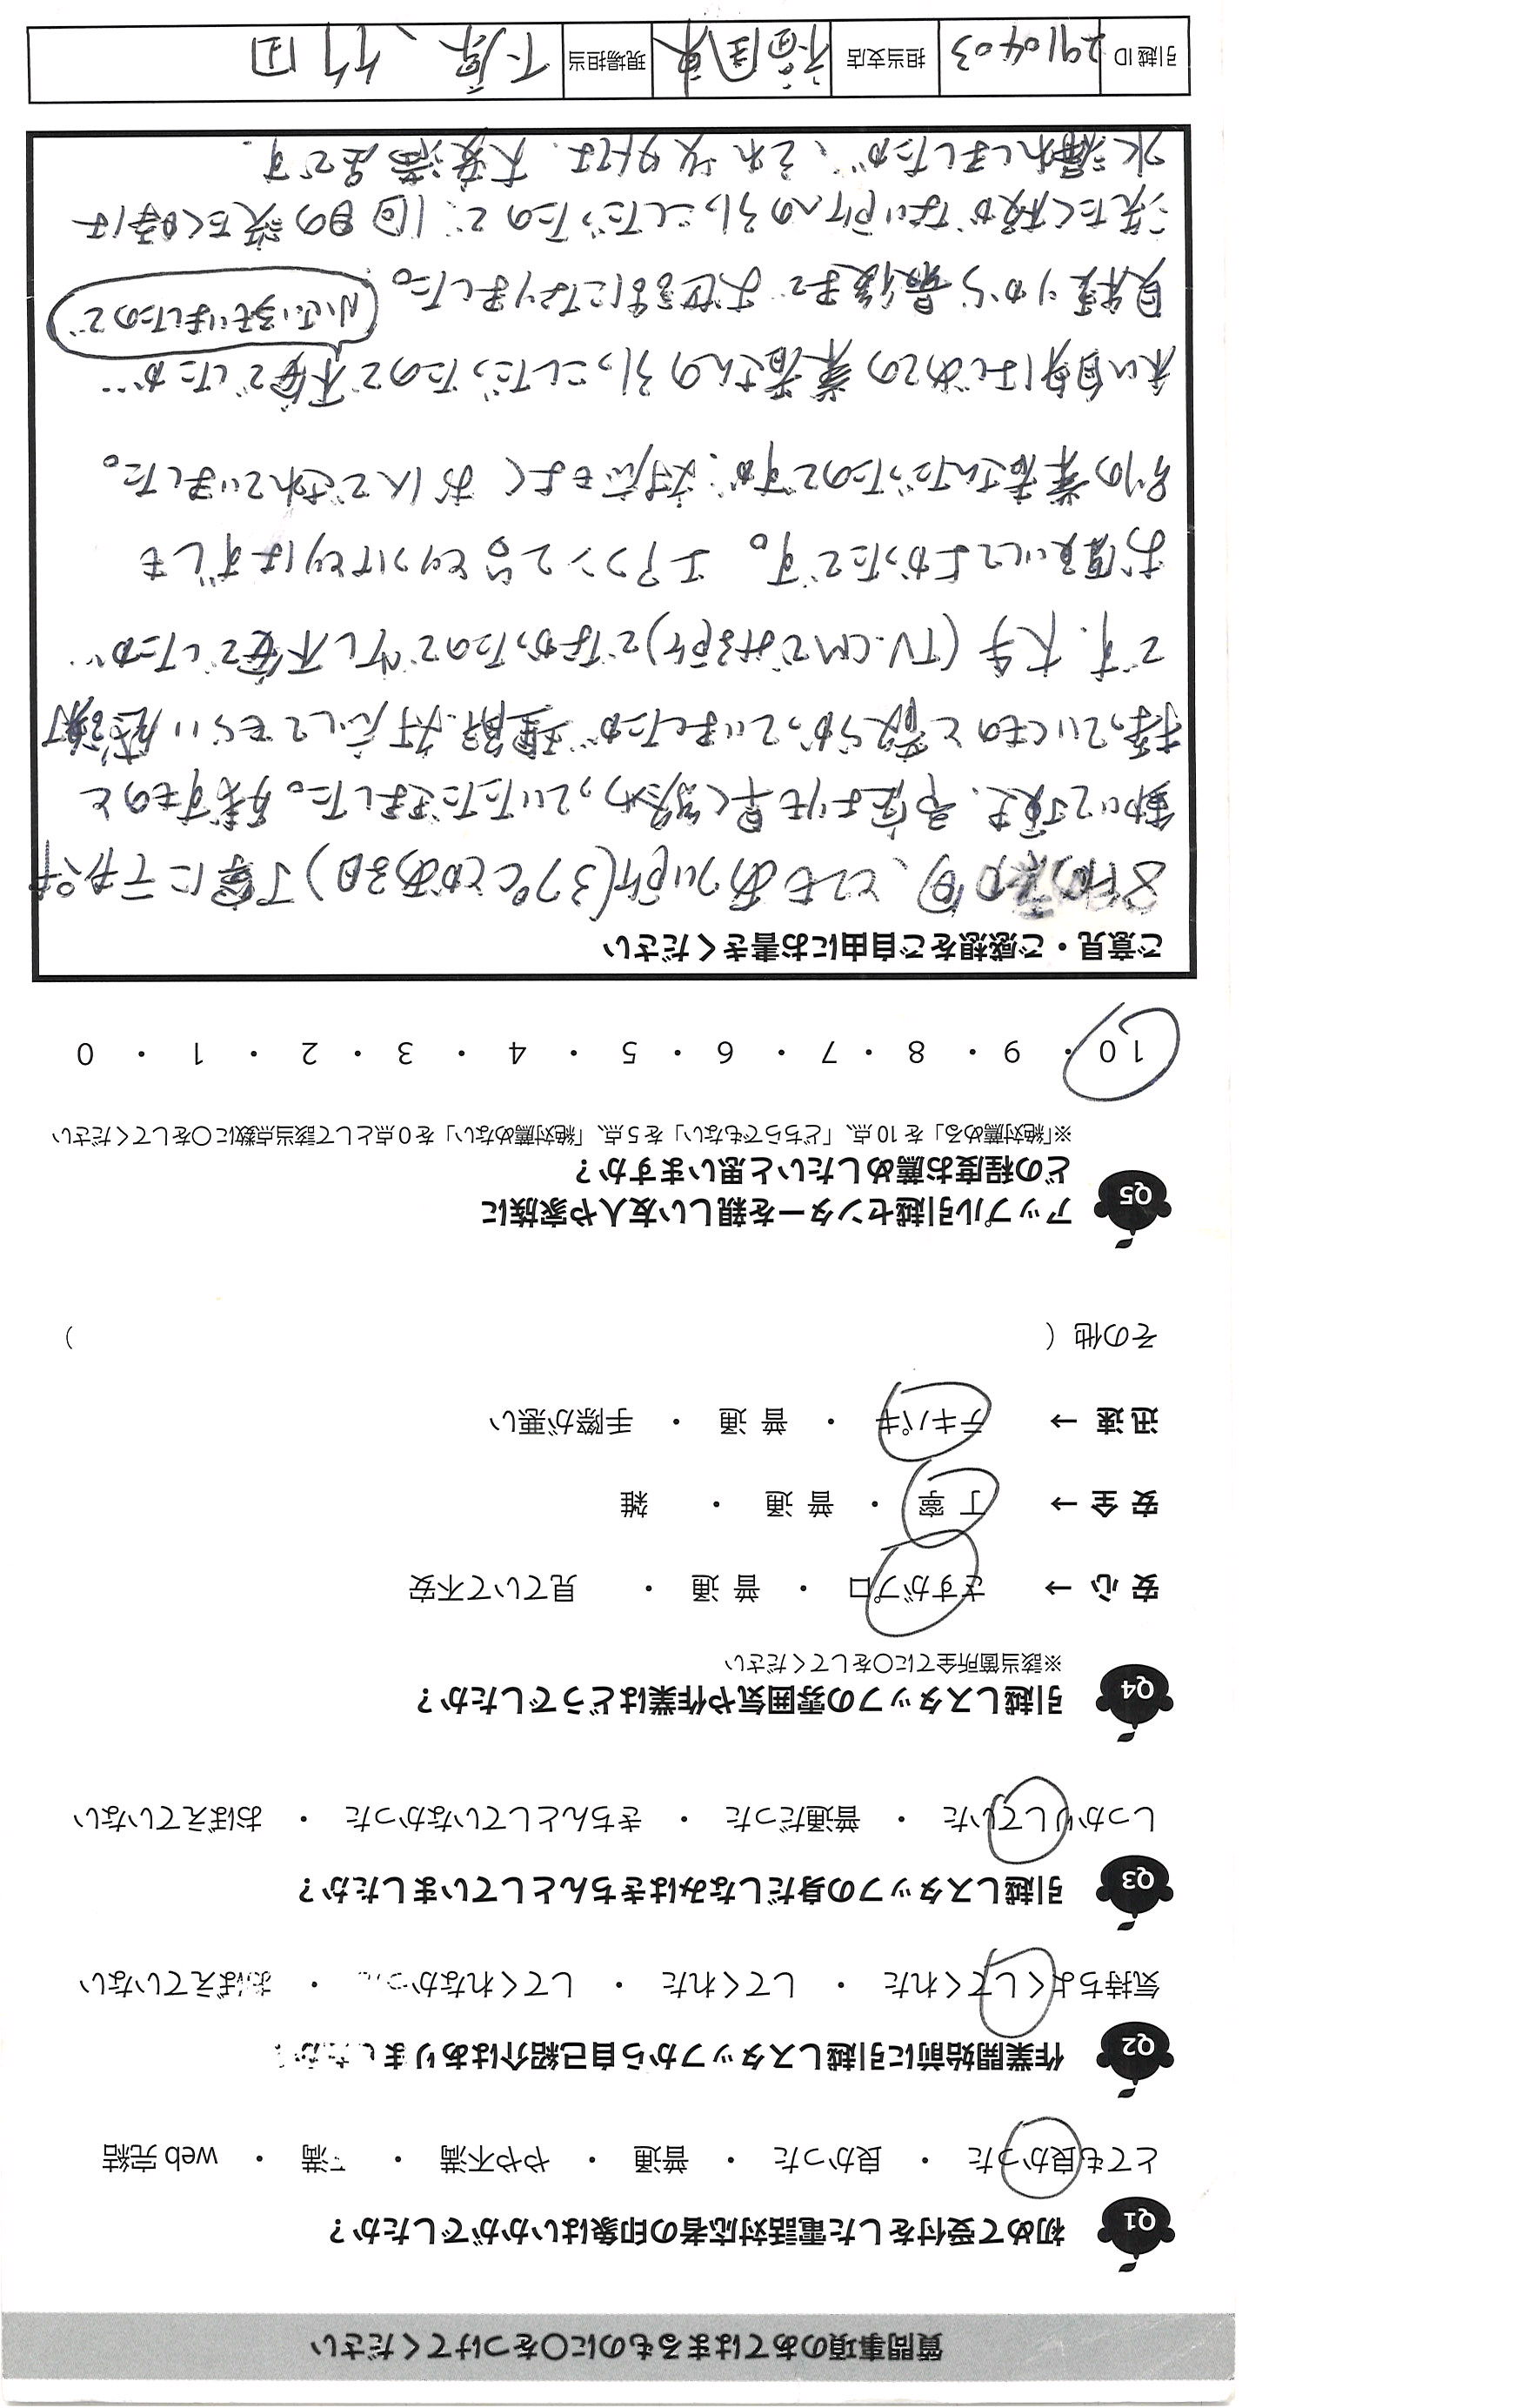 質問事項のあてはまるものに○をつけてください
Q1 初めて受付をした電話対応者の印象はいかがでしたか？
とても良かった ・ 良かった ・ 普通 ・ やや不満 ・ 不満 ・ web 完結
Q2 作業開始前に引越しスタッフから自己紹介はありましたか
気持ちよくしてくれた ・ してくれた ・ してくれなかった ・ おぼえていない
Q3 引越しスタッフの身だしなみはきちんとしていましたか？
しっかりしていた ・ 普通だった ・ きちんとしていなかった ・ おぼえていない
Q4 引越しスタッフの雰囲気や作業はどうでしたか？
※該当箇所全てに○をしてください
安 心 → さすがプロ ・ 普 通 ・ 見ていて不安
安 全 → 丁 寧 ・ 普 通 ・ 雑
迅 速 → テキパキ ・ 普 通 ・ 手際が悪い
その他（ ）
Q5 アップル引越センターを親しい友人や家族に
どの程度お薦めしたいと思いますか？
※「絶対薦める」を 10 点、「どちらでもない」を 5 点、「絶対薦めない」を 0 点として該当点数に○をしてください
10 ・ 9 ・ 8 ・ 7 ・ 6 ・ 5 ・ 4 ・ 3 ・ 2 ・ 1 ・ 0
ご意見・ご感想をご自由にお書きください
旬、とてもあつい所(37℃とかある日)丁寧にテキパキ
動いて頂き、予定よりも早く終わっていただきました。残すものと
持っていくものと散らかっていましたが理解.対応してもらい感謝
です. 大手(TV.CMでみる所)でなかったので少し不安でしたが…
お願いしてよかったです。 エアコン2台とりつけとりはずしも
別の業者さんだったのですが、対応もよく お人てされていました。
私自身はじめての業者さんの引っこしだったので不安でしたが…
小さい子もいましたので
見積りから最後までお世話になりました。
洗たく板がない所への引っこしだったので、1回目の洗たく時は
水漏れしましたが、それ以外は、大変満足です.
引越 ID 2910403 担当支店 福岡東 現場担当 下原、竹田